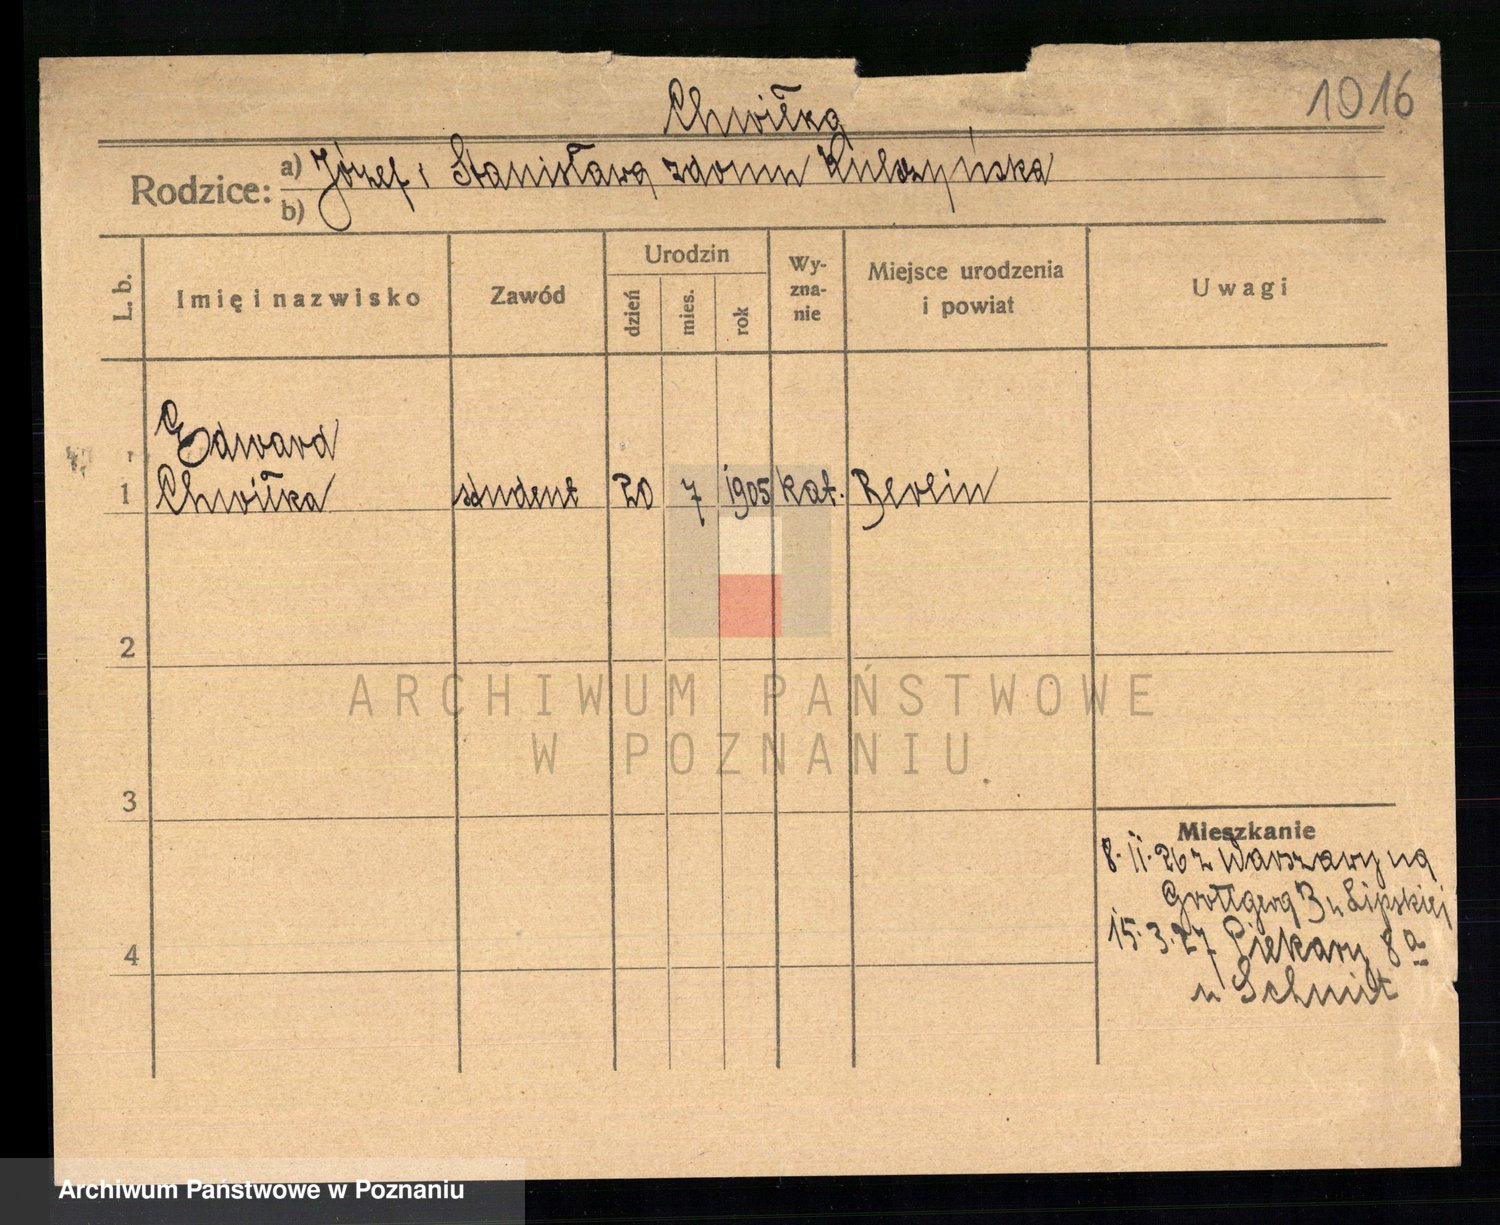 1016
Chwiłka
Rodzice:
a) Józef i Stanisława zdomu Kulczyńska
b)
L. b.
Imię i nazwisko
Zawód
Urodzin
dzień
mies.
rok
Wy-
zna-
nie
Miejsce urodzenia
i powiat
Uwagi
Edward
1 Chwiłka student 20 7 1905 kat. Berlin
2
ARCHIWUM PAŃSTWOWE
W POZNANIU
3
Mieszkanie
8.11.26 z Warszawy na
Grottgera 3 u Lipskiej
4
15.3.27 Piekary 8a
u Schmit
Archiwum Państwowe w Poznaniu